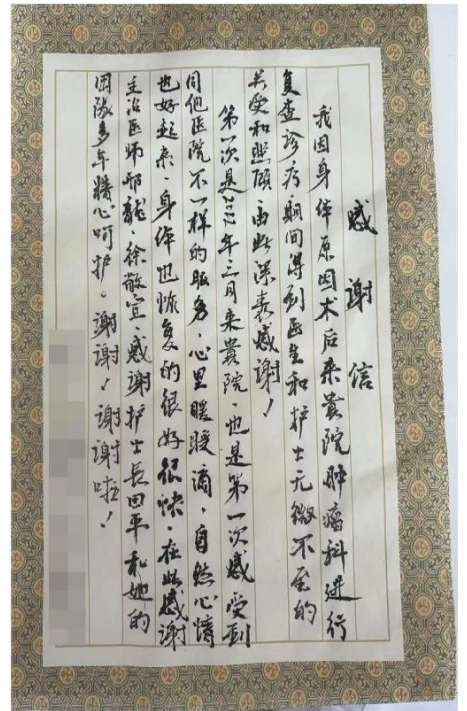 感谢信
我因身体原因术后来贵院肿瘤科进行
复查诊疗期间得到医生和护士无微不至的
关爱和照顾，由此深表感谢！
第一次是2022年三月来贵院，也是第一次感受到
同他医院不一样的服务，心里暖暖滴，自然心情
也好起来，身体也恢复的很好很快，在此感谢
主治医师邢龙、徐敬宣，感谢护士長田平和她的
团隊多年精心呵护。谢谢！谢谢啦！